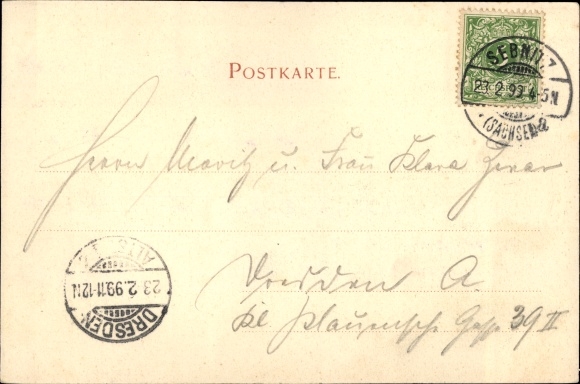 POSTKARTE.
SEBNITZ
23 2 99 4-5N
(SACHSEN) a
Herrn Moritz u. Frau Klara
Dresden A.
kl. Plauensche Gasse 39 II
DRESDEN
23 2.99.11-12N
ALTST.